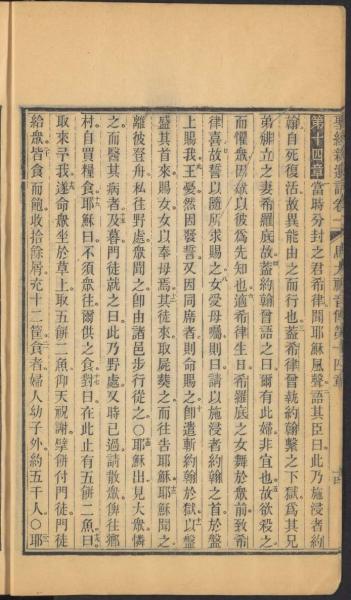 第十四章 當時分封之君希律聞耶穌風聲語其臣曰此乃施浸者約
翰自死復活故異能由之而行也蓋希律曾執約翰繫之下獄爲其兄
弟緋立之妻希羅底故蓋約翰曾語之曰爾有此婦非宜也故欲殺之
而懼衆因衆以彼爲先知也適希律生日希羅底之女舞於衆前致希
律喜故誓以隨所求賜之女受母囑則曰請以施浸者約翰之首於盤
上賜我王憂然因發誓又因同席者則命賜之卽遣斬約翰於獄以盤
盛其首來賜女女以奉母焉其徒來取屍葬之而往告耶穌耶穌聞之
離彼登舟私往野處衆聞之卽由諸邑步行從之〇耶穌出見大衆憐
之而醫其病者及暮門徒就之曰此乃野處又時已過請散衆俾往鄉
村自買糧食耶穌曰不須衆往爾供之食對曰在此止有五餅二魚曰
取來予我遂命衆坐於草上取五餅二魚仰天祝謝擘餅付門徒門徒
給衆皆食而飽收拾餘屑充十二筐食者婦人幼子外約五千人〇耶